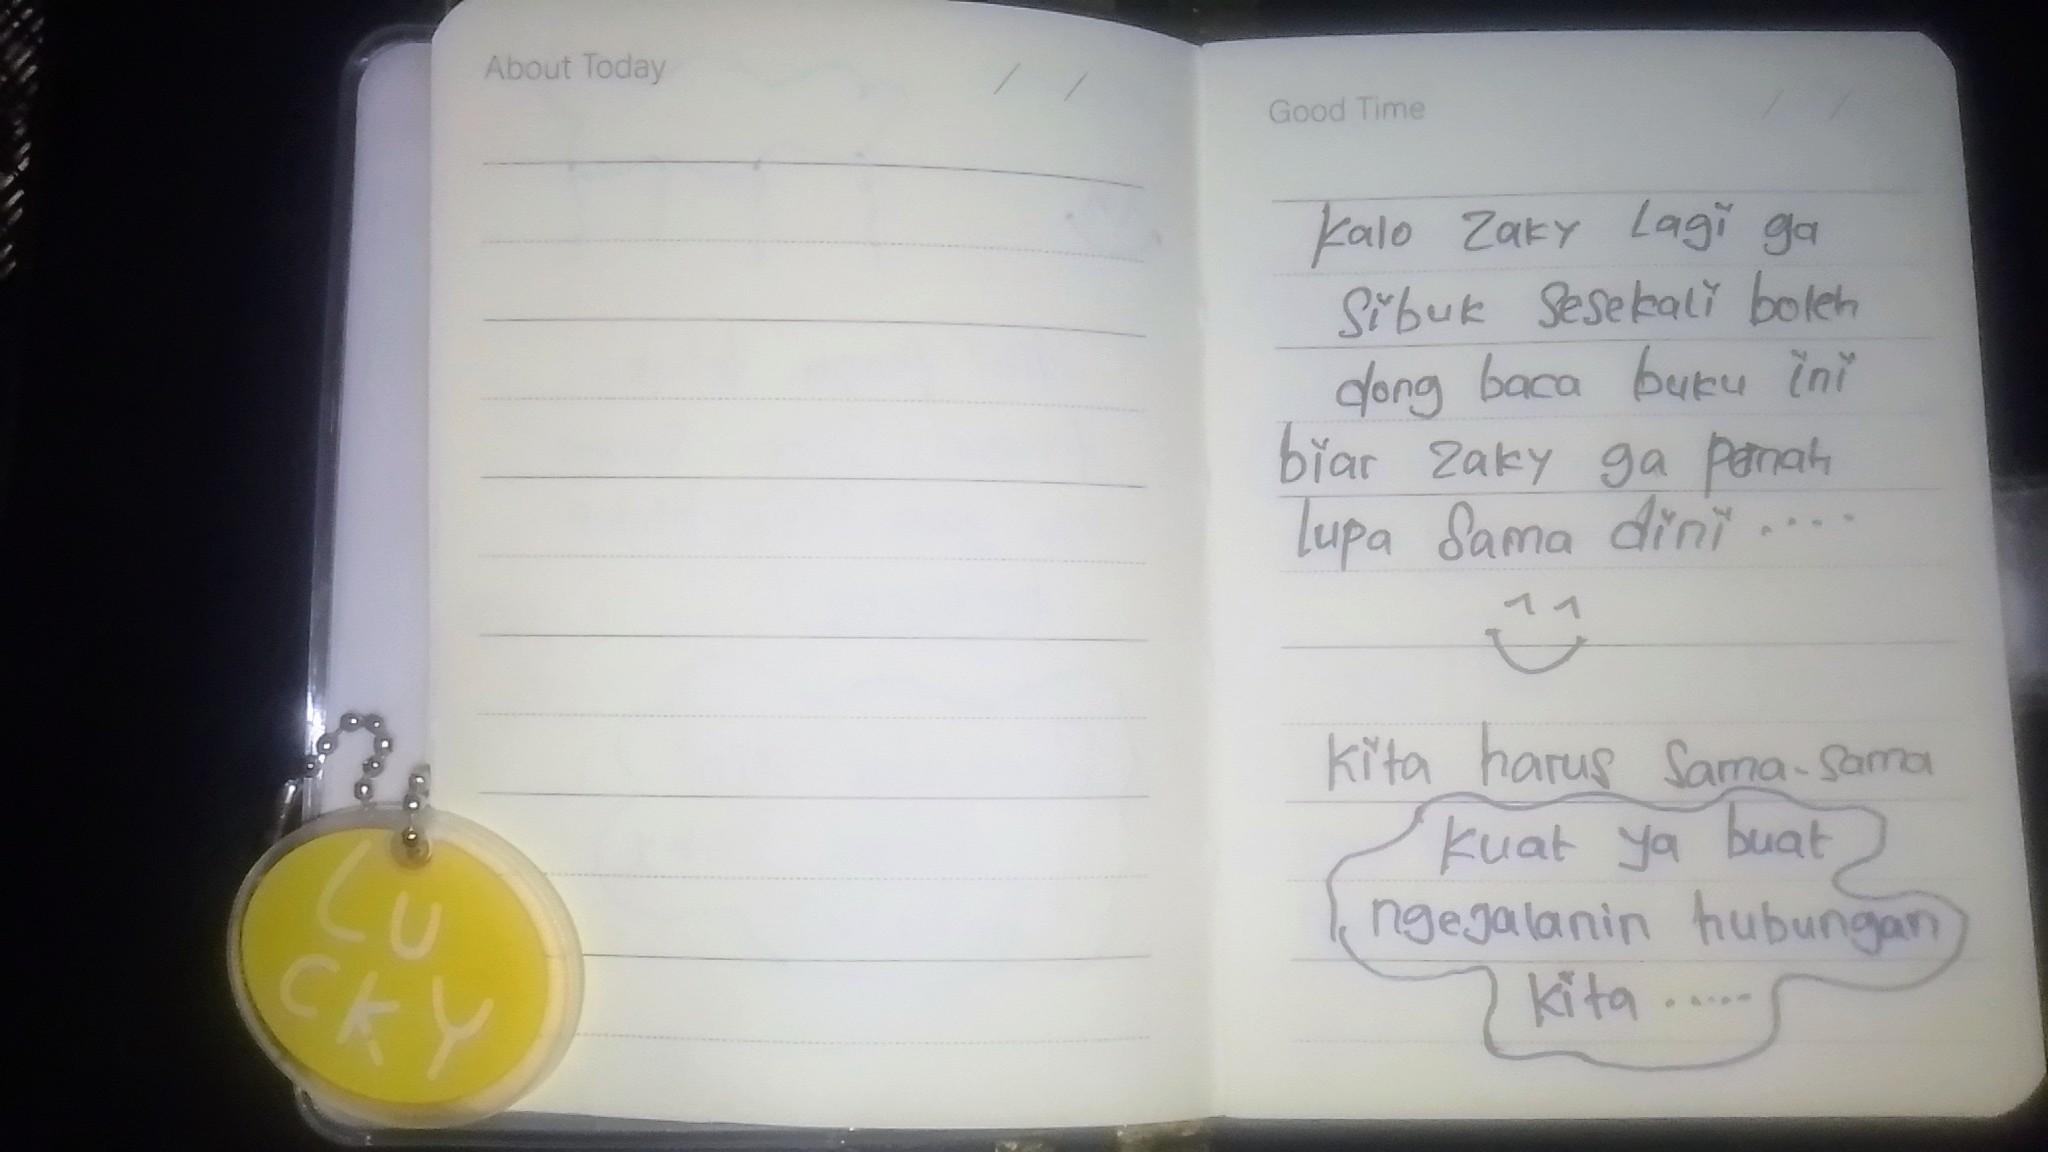 About Today / /
Good Time / /
Kalo Zaky Lagi ga
Sibuk Sesekali boleh
dong baca buku ini
biar Zaky ga pernah
lupa Sama dini ....
Kita harus Sama-sama
Kuat ya buat
ngejalanin hubungan
Kita .....
LU
CKY